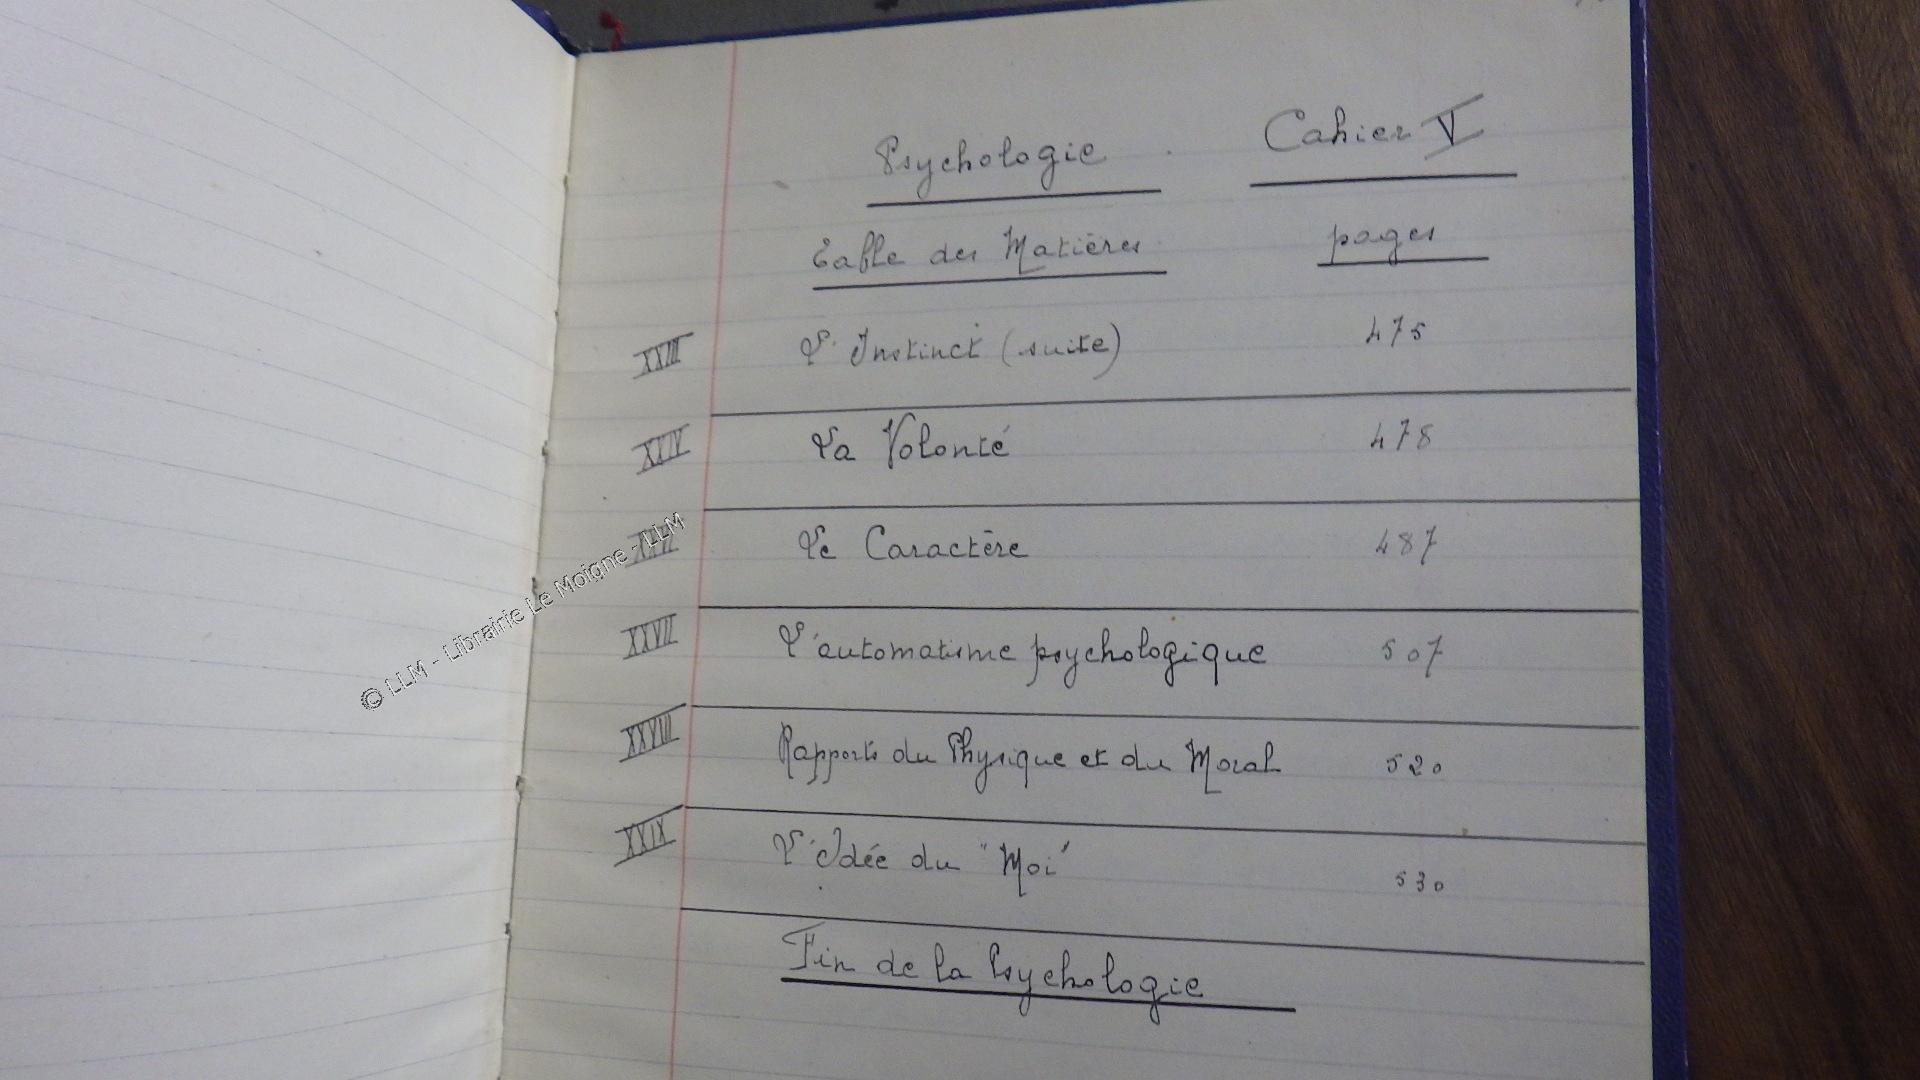 Psychologie. Cahier V
Table des Matières pages
XXIII L'Instinct (suite) 475
XXIV La Volonté 478
Le Caractère 487
XXVII L'automatisme psychologique 507
XXVIII Rapports du Physique et du Moral 520
XXIX L'Idée du "Moi" 530
Fin de la Psychologie
© LLM - Librairie Le Moigne - LLM